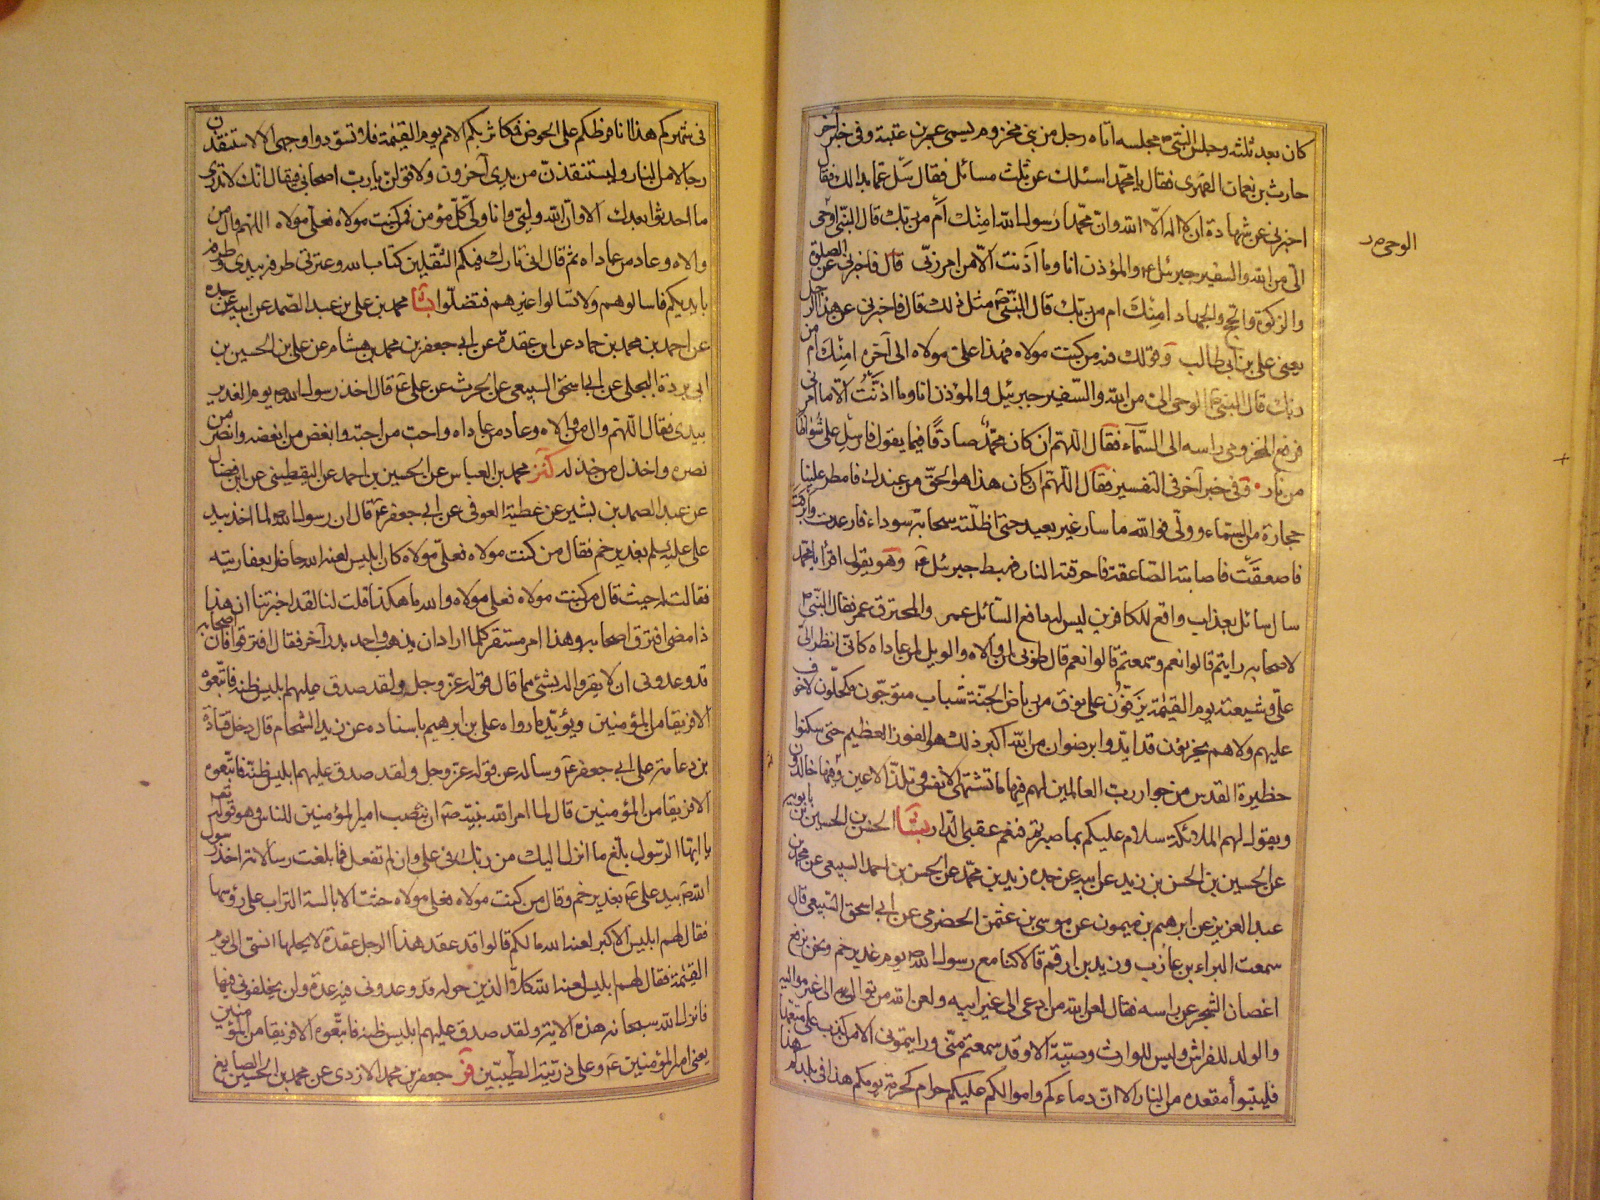 كان بعد ثلثة وجلس النبي ص مجلسه اتاه رجل من بني مخزوم يسمى عمر بن عتبة وفي خبر آخر
حارث بن نعمان الفهري فقال يا محمد اسئلك عن ثلث مسائل فقال سل عما بدا لك فقال
اخبرني عن شهادة ان لا اله الا الله وان محمدا رسول الله امنك أم من ربك قال النبي اوحي
الي من الله والسفير جبرئيل ع والمؤذن انا وما اذنت الا من امر ربي قال فاخبرني عن الصلوة
والزكوة والحج والجهاد امنك ام من ربك قال النبي ص مثل ذلك قال فاخبرني عن هذا الرجل
يعني علي بن ابي طالب وقولك فيه من كنت مولاه فهذا علي مولاه الى آخره امنك أم من
ربك قال النبي ص الوحي الي من الله والسفير جبرئيل والمؤذن انا وما اذنت الا ما امرني
فرفع المخزومي راسه الى السماء فقال اللهم ان كان محمد صادقا فيما يقول فارسل علي شواظا
من نار وفي خبر آخر في التفسير فقال اللهم ان كان هذا هو الحق من عندك فامطر علينا
حجارة من السماء وولى فوالله ما سار غير بعيد حتى اظلته سحابة سوداء فارعدت وابرقت
فاصعقت فاصابته الصاعقة فاحرقته النار فهبط جبرئيل ع وهو يقول اقرأ يا محمد
سال سائل بعذاب واقع للكافرين ليس له دافع السائل عمر والمحترق عمر فقال النبي ص
لاصحابه رايتم قالوا نعم وسمعتم قالوا نعم قال طوبى لمن والاه والويل لمن عاداه كاني انظر الى
علي وشيعته يوم القيمة يزفون على نوق من رياض الجنة شباب متوجون مكحلون لا خوف
عليهم ولا هم يحزنون قد ايدوا برضوان من الله اكبر ذلك هو الفوز العظيم حتى سكنوا
حظيرة القدس من جوار رب العالمين لهم فيها ما تشتهي الانفس وتلذ الاعين وهم فيها خالدون
ويقول لهم الملائكة سلام عليكم بما صبرتم فنعم عقبى الدار بشا الحسن بن الحسين بن بابويه
عن الحسين بن الحسن بن زيد عن ابيه عن جده زيد بن محمد عن الحسن بن احمد السبيعي عن محمد بن
عبد العزيز عن ابرهيم بن ميمون عن موسى بن عثمن الحضرمي عن ابي اسحق السبيعي قال
سمعت البراء بن عازب وزيد بن ارقم قالا كنا مع رسول الله ص يوم غدير خم ونحن نرفع
اغصان الشجر عن راسه فقال لعن الله من ادعى الى غير ابيه ولعن الله من توالى الى غير مواليه
والولد للفراش وليس للوارث وصية الا وقد سمعتم مني ورايتموني الا من كذب علي متعمدا
فليتبوأ مقعده من النار الا ان دماءكم واموالكم عليكم حرام كحرمة يومكم هذا في بلدكم هذا
الوحي م ر
في شهركم هذا انا فرطكم على الحوض فمكاثر بكم الامم يوم القيمة فلا تسودوا وجهي الا لاستنقذن
رجالا من النار وليستنقذن من يدي آخرون ولاقولن يا رب اصحابي فيقال انك لا تدري
ما احدثوا بعدك الا وان الله وليي وانا ولي كل مؤمن فمن كنت مولاه فعلي مولاه اللهم وال من
والاه وعاد من عاداه ثم قال اني تارك فيكم الثقلين كتاب الله وعترتي طرفه بيدي وطرفه
بايديكم فاسالوهم ولا تسالوا غيرهم فتضلوا بشا محمد بن علي بن عبد الصمد عن ابيه عن جده
عن احمد بن محمد بن حماد عن ابن عقدة عن ابي جعفر بن محمد بن هشام عن علي بن الحسين بن
ابي بردة البجلي عن ابي اسحق السبيعي عن الحرث عن علي ع قال اخذ رسول الله ص يوم الغدير
بيدي فقال اللهم وال من والاه وعاد من عاداه واحب من احبه وابغض من ابغضه وانصر من
نصره واخذل من خذله كنز محمد بن العباس عن الحسين بن احمد عن اليقطيني عن ابن فضال
عن عبد الصمد بن بشير عن عطية العوفي عن ابي جعفر ع قال ان رسول الله ص لما اخذ بيد
علي عليه السلم بغدير خم فقال من كنت مولاه فعلي مولاه كان ابليس لعنه الله حاضرا بعفاريته
فقالت له حيث قال من كنت مولاه فعلي مولاه والله ما هكذا قلت لنا لقد اخبرتنا ان هذا
اذا مضى افترق اصحابه وهذا امر مستقر كلما اراد ان يذهب واحد بدر آخر فقال افترقوا فان اصحابه
قد وعدوني ان لا يقروا له بشئ مما قال قوله عز وجل ولقد صدق عليهم ابليس ظنه فاتبعوه
الا فريقا من المؤمنين ويؤيده ما رواه علي بن ابرهيم باسناده عن زيد الشحام قال دخل قتادة
بن دعامة على ابي جعفر ع وساله عن قوله عز وجل ولقد صدق عليهم ابليس ظنه فاتبعوه
الا فريقا من المؤمنين قال لما امر الله نبيه ص ان ينصب امير المؤمنين للناس وهو قوله تعه
يا ايها الرسول بلغ ما انزل اليك من ربك في علي وان لم تفعل فما بلغت رسالاته اخذ رسول
الله ص بيد علي ع بغدير خم وقال من كنت مولاه فعلي مولاه حثت الابالسة التراب على رؤسها
فقال لهم ابليس الاكبر لعنه الله مالكم قالوا قد عقد هذا الرجل عقدة لا يحلها انسي الى يوم
القيمة فقال لهم ابليس لعنه الله كلا الذين حوله قد وعدوني فيه عدة ولن يخلفوني فيها
فانزل الله سبحانه هذه الاية ولقد صدق عليهم ابليس ظنه فاتبعوه الا فريقا من المؤمنين
يعني امير المؤمنين ع وعلى ذريته الطيبين فر جعفر بن محمد الازدي عن محمد بن الحسين الصايغ